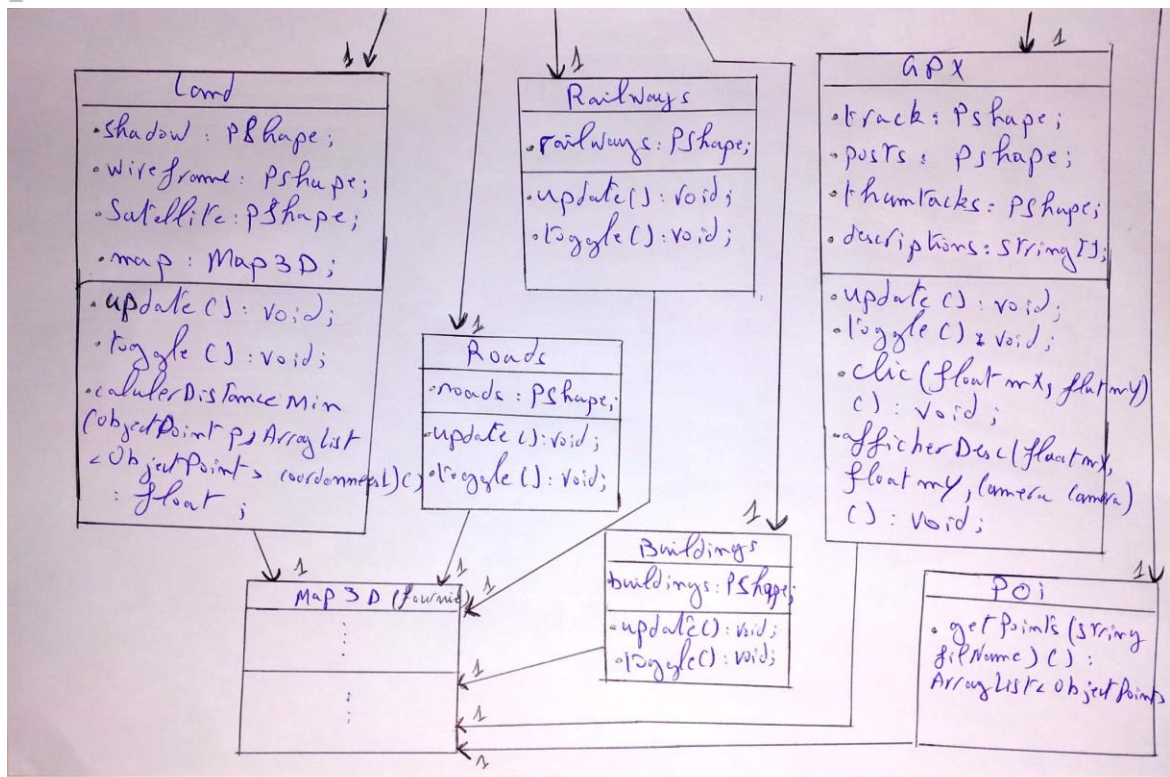 1
Land
• shadow : PShape;
• wireframe : Pshape;
• Satellite : pShape;
• map : Map3D;
• update () : void;
• toggle () : void;
• calulerDistanceMin
(objectPoint p, ArrayList
< ObjectPoint > coordonnees1) ()
: float ;
1
Railways
• railways : PShape;
• update () : void;
• toggle () : void;
1
GPX
• track : Pshape;
• posts : Pshape;
• thumtacks : PShape;
• descriptions : String[];
• update () : void;
• toggle () : void;
• clic (float mX, flat mY)
() : void;
• afficherDesc (float mX,
float mY, Camera camera)
() : void;
1
Roads
• roads : PShape;
• update () : void;
• toggle () : void;
1
Buildings
buildings : PShape;
• update () : void;
• toggle () : void;
1
POi
• getPoints (String
filName) () :
ArrayList < ObjectPoint>
1
1
1
Map 3D (fournie)
1
1
1